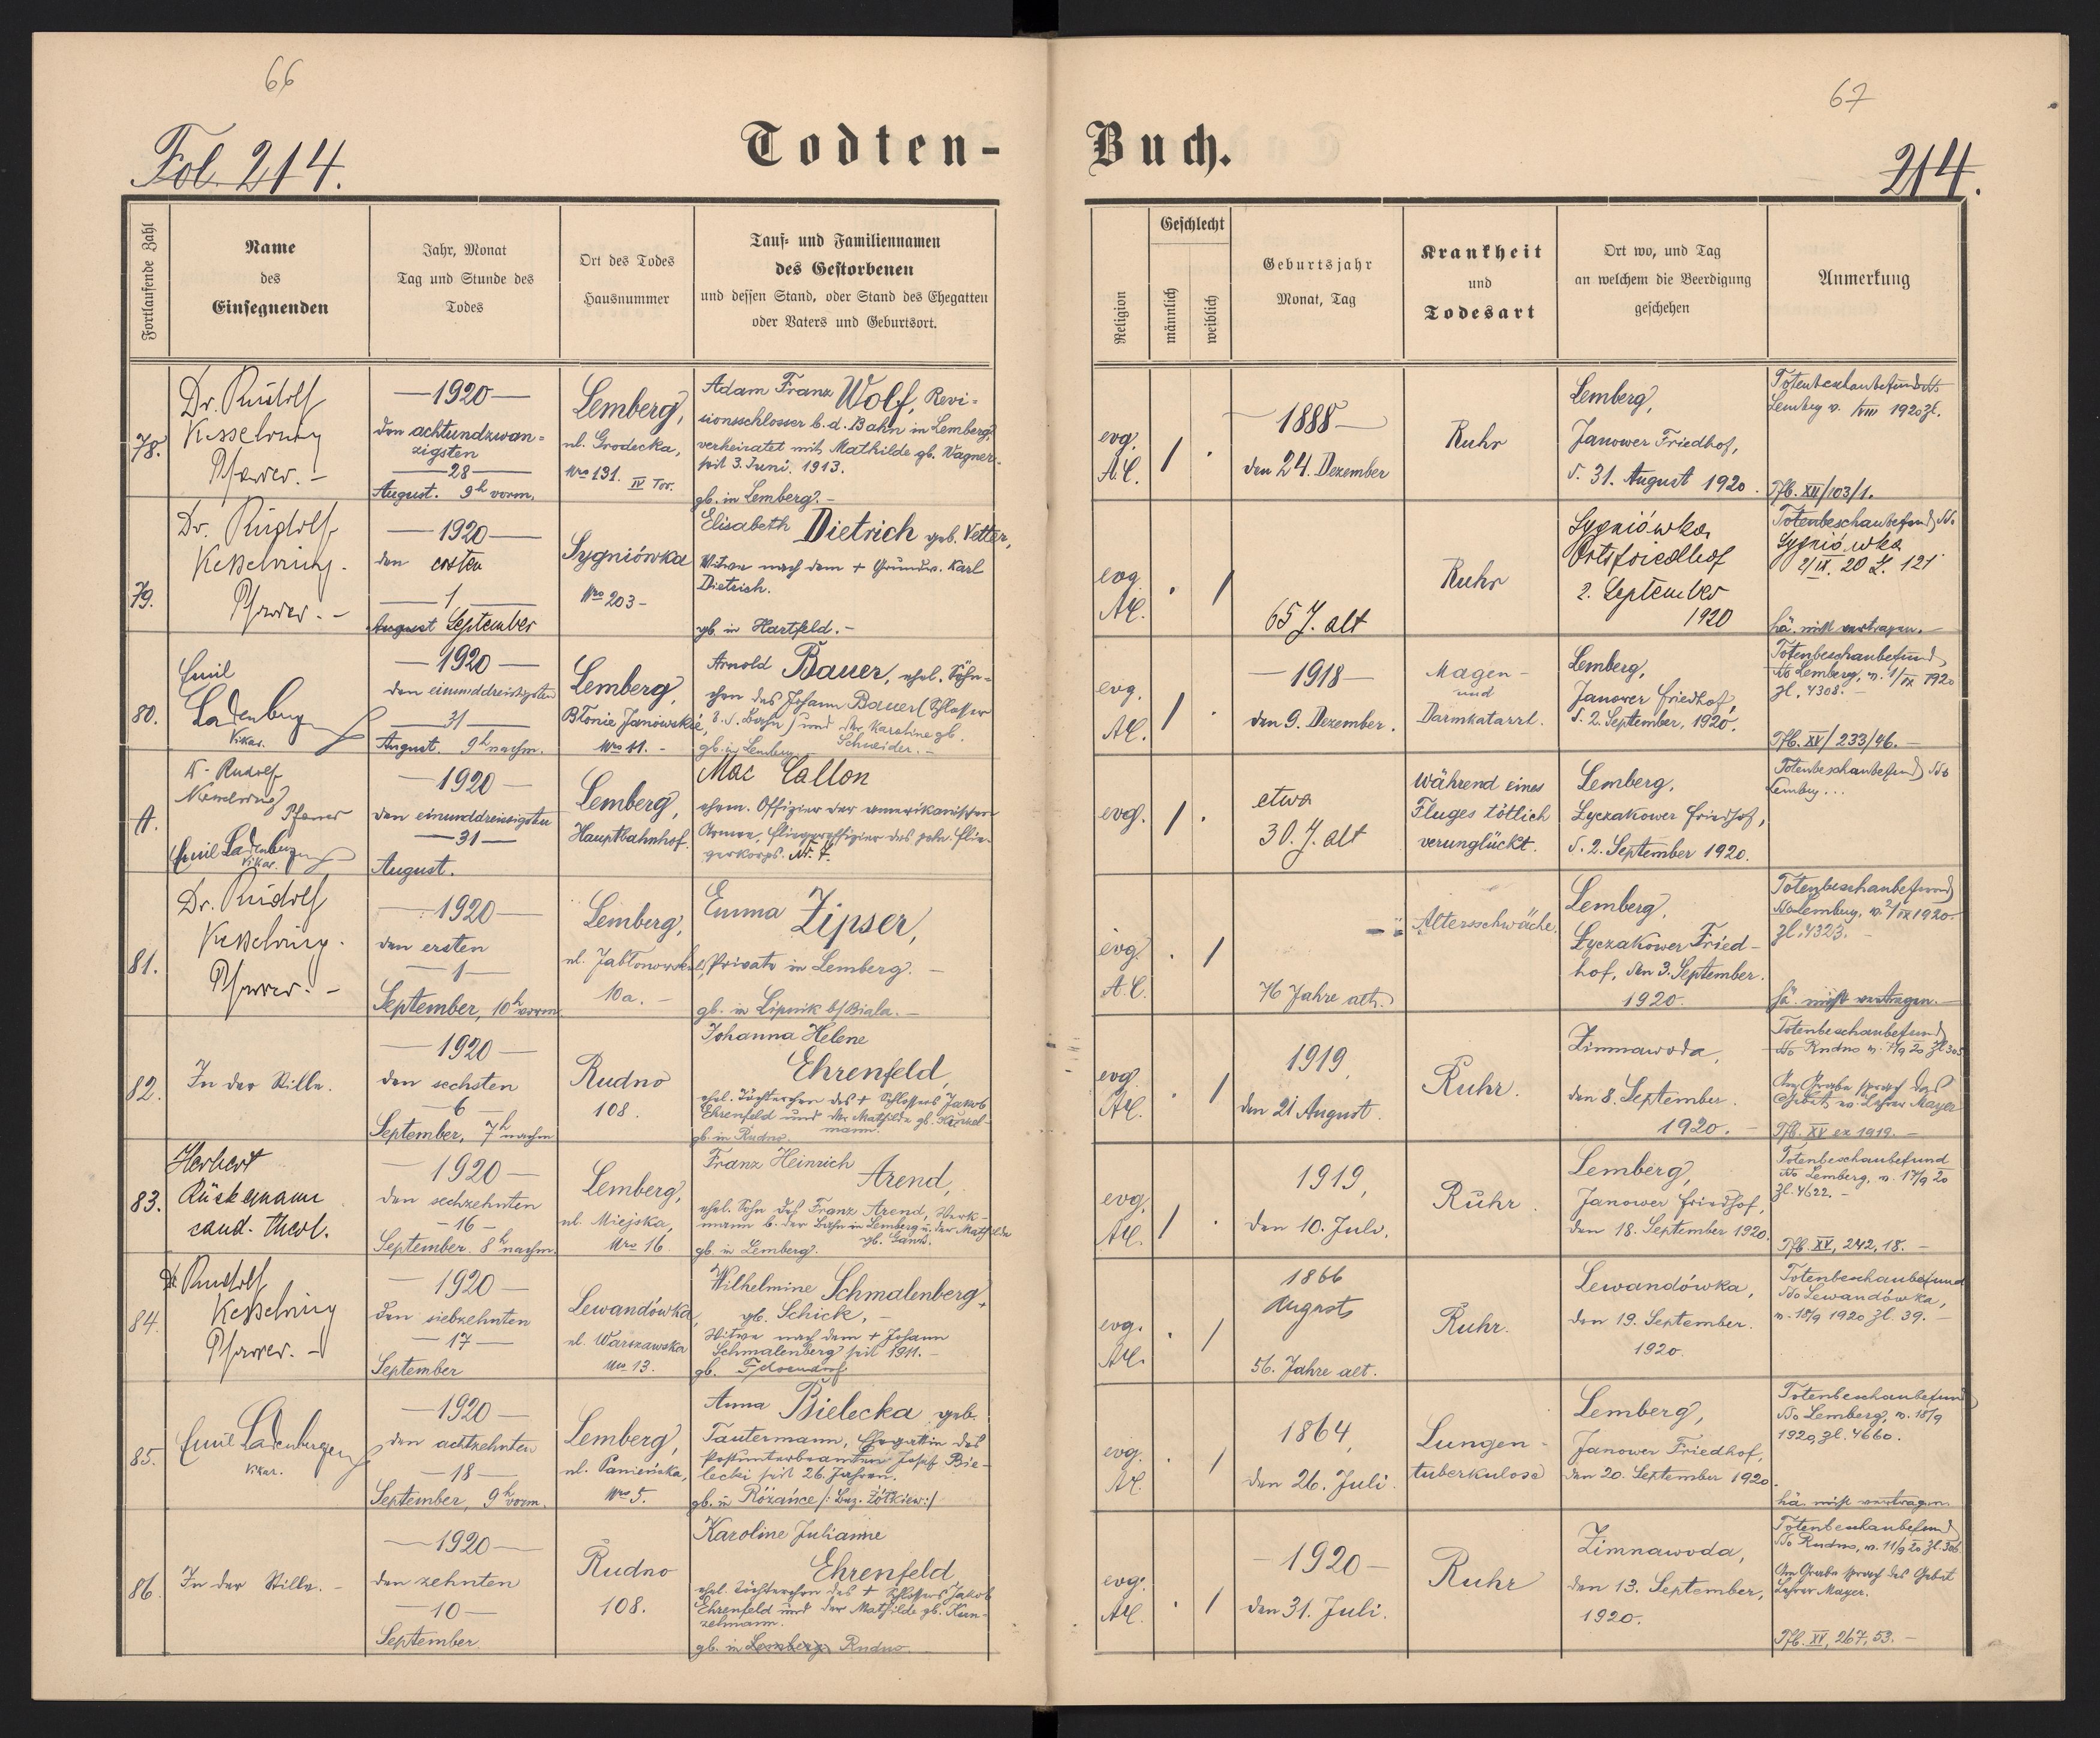 66
67
Fol. 214.
Todten-
Buch.
214.
Fortlaufende Zahl
Name
des
Einsegnenden
Jahr, Monat
Tag und Stunde des
Todes
Ort des Todes
Hausnummer
Tauf- und Familiennamen
des Gestorbenen
und dessen Stand, oder Stand des Ehegatten
oder Vaters und Geburtsort.
Religion
Geschlecht
männlich
weiblich
Geburtsjahr
Monat, Tag
Krankheit
und
Todesart
Ort wo, und Tag
an welchem die Beerdigung
geschehen
Anmerkung
78.
Dr. Rudolf
Kesselring
Pfarrer. -
—1920—
den achtundzwan-
zigsten
—28—
August. 9h vorm.
Lemberg,
ul. Grodecka,
Nro 131. IV Tor.
Adam Franz Wolf, Revi-
sionsschlosser b. d. Bahn in Lemberg,
verheiratet mit Mathilde gb. Wagner
seit 3. Juni. 1913.
gb. in Lemberg. -
evg.
A.C.
/
.
1888—
den 24. Dezember
Ruhr
Lemberg,
Janower Friedhof,
d. 31. August 1920.
Totenbeschaubefund
Lemberg v. /VIII 1920 zl.
Pfb. XII/103/1.
79.
Dr. Rudolf
Kesselring.
Pfarrer. -
—1920—
den ersten
—1—
August September
Sygniówka
Nro 203-
Elisabeth Dietrich geb. Vetter,
Witwe nach dem + Grundw. Karl
Dietrich.
gb. in Hartfeld. -
evg.
AC.
.
/
65 J. alt
Ruhr
Sygniówka
Ortsfriedhof
2. September
1920
Totenbeschaubefund
Sygniówka
2/IX. 20 Z. 121
hä. nicht vertragen. -
80.
Emil
Ladenberger
Vikar.
—1920—
den einunddreissigsten
—31—
August. 9h nachm.
Lemberg,
Błonie Janowskie,
Nro 11. -
Arnold Bauer, ehel. Söhn-
chen des Johann Bauer (Schlosser
b. d. Bahn) und der Karoline gb.
Schneider. -
gb. in Lemberg. -
evg.
AC.
/
.
—1918—
den 9. Dezember.
Magen-
und
Darmkatarrh.
Lemberg,
Janower Friedhof,
d. 2. September, 1920.
Totenbeschaubefund,
Lemberg, v. 1/IX 1920
zl. 4308. -
Pfb. XV/233/46. -
A.
Dr. Rudolf
Kesselring
Pfarrer
Emil Ladenberger
Vikar.
—1920—
den einunddreissigsten
—31—
August.
Lemberg,
Hauptbahnhof.
Mac Callon
ehem. Offizier der amerikanischen
Armee, Fliegeroffizier des poln. Flie-
gerkorps.
evg.
/
.
etwa
30. J. alt
Während eines
Fluges tötlich
verunglückt.
Lemberg,
Łyczakower Friedhof,
d. 2. September 1920.
Totenbeschaubefund
Lemberg...
81.
Dr. Rudolf
Kesselring.
Pfarrer. -
—1920—
den ersten
—1—
September, 10h vorm.
Lemberg,
ul. Jabłonowskich,
10a. -
Emma Zipser,
Private in Lemberg. -
gb. in Lipnik b/Biala. -
evg.
A.C.
.
/
76 Jahre alt.
Altersschwäche.
Lemberg,
Łyczakower Fried-
hof, den 3. September.
1920.
Totenbeschaubefund
Lemberg, v. 2/IX 1920.
zl. 4323. -
hä. nicht vertragen. -
82.
In der Stille.
—1920—
den sechsten
—6—
September, 7h nachm
Rudno
108.
Johanna Helene
Ehrenfeld,
ehel. Töchterchen des + Schlossers Jakob
Ehrenfeld und der Mathilde gb. Kunzel-
mann.
gb. in Rudno.
evg.
AC.
.
/
1919,
den 21 August.
Ruhr.
Zimnawoda,
den 8. September.
1920. -
Totenbeschaubefund
Rudno v. 7/9 20 Zl 305
Am Grabe sprach das
Gebet Lehrer Mayer
Pfb. XV ex 1919. -
83.
Herbert
Rückemann
cand. theol.
—1920—
den sechzehnten
—16—
September. 8h nachm.
Lemberg,
ul. Miejska,
Nro 16
Franz Heinrich
Arend,
ehel. Sohn des Franz Arend, Werk-
mann b. der Bahn in Lemberg u. der Mathilde
gb.
gb. in Lemberg.
evg.
AC.
/
.
1919,
den 10. Juli.
Ruhr.
Lemberg,
Janower Friedhof,
den 18. September 1920.
Totenbeschaubefund
Lemberg, v. 17/9 20
zl. 4622. -
Pfb. XV, 242, 18. -
84.
Dr. Rudolf
Kesselring
Pfarrer. -
—1920—
den siebzehnten
—17—
September
Lewandówka,
ul. Warszawska
Nro 13.
Wilhelmine Schmalenberg,
gb. Schick, -
Witwe nach dem + Johann
Schmalenberg seit 1911. -
gb.
evg.
AC.
.
/
1866
August
56. Jahre alt.
Ruhr.
Lewandówka,
den 19. September.
1920.
Totenbeschaubefund
Lewandówka,
v. 18/9 1920 zl. 39. -
85.
Emil Ladenberger
Vikar.
—1920—
den achtzehnten
—18—
September, 9h vorm.
Lemberg,
ul. Panieńska,
Nro 5.
Anna Bielecka geb.
Tautermann, Ehegattin des
Postunterbeamten Josef Bie-
lecki seit 26. Jahren.
gb. in Różańce /: Bez. Żółkiew :/
evg.
AC.
.
/
1864,
den 26. Juli.
Lungen-
tuberkulose
Lemberg,
Janower Friedhof,
den 20. September 1920.
Totenbeschaubefund
Lemberg, v. 18/9
1920, zl. 4660.
hä. nicht vertragen.
86.
In der Stille. -
—1920—
den zehnten
—10—
September
Rudno
108.
Karoline Julianne
Ehrenfeld,
ehel. Töchterchen des + Schlossers Jakob
Ehrenfeld und der Mathilde gb. Kun-
zelmann.
gb. in Lemberg Rudno.
evg.
AC.
.
/
—1920—
den 31. Juli.
Ruhr
Zimnawoda,
den 13. September,
1920.
Totenbeschaubefund
Rudno, v. 11/9 20 zl. 306.
Am Grabe sprach das Gebet
Lehrer Mayer.
Pfb. XV, 267, 53. -